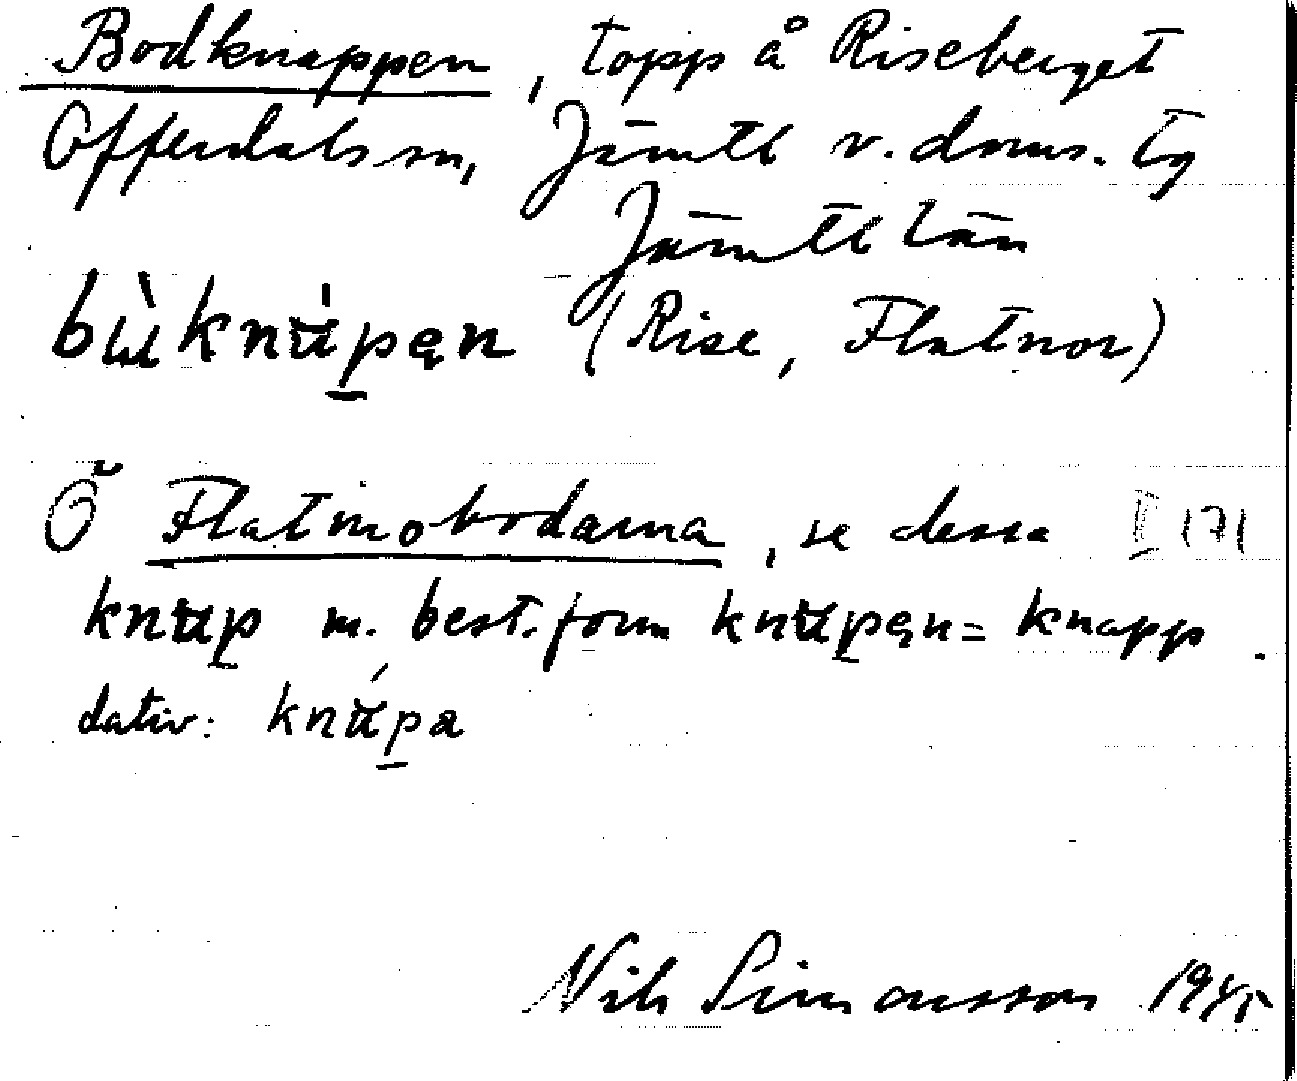 Bodknappen, topp å Riseberget
Offerdals sn, Jämtl v. doms. tg
Jämtl län
bùknápen (Rise, Flatnor)
Ö Flatmobodarna, se dessa I 171
knap m. best. form knapen = knapp
dativ: knápa
Nils Simonsson 1945